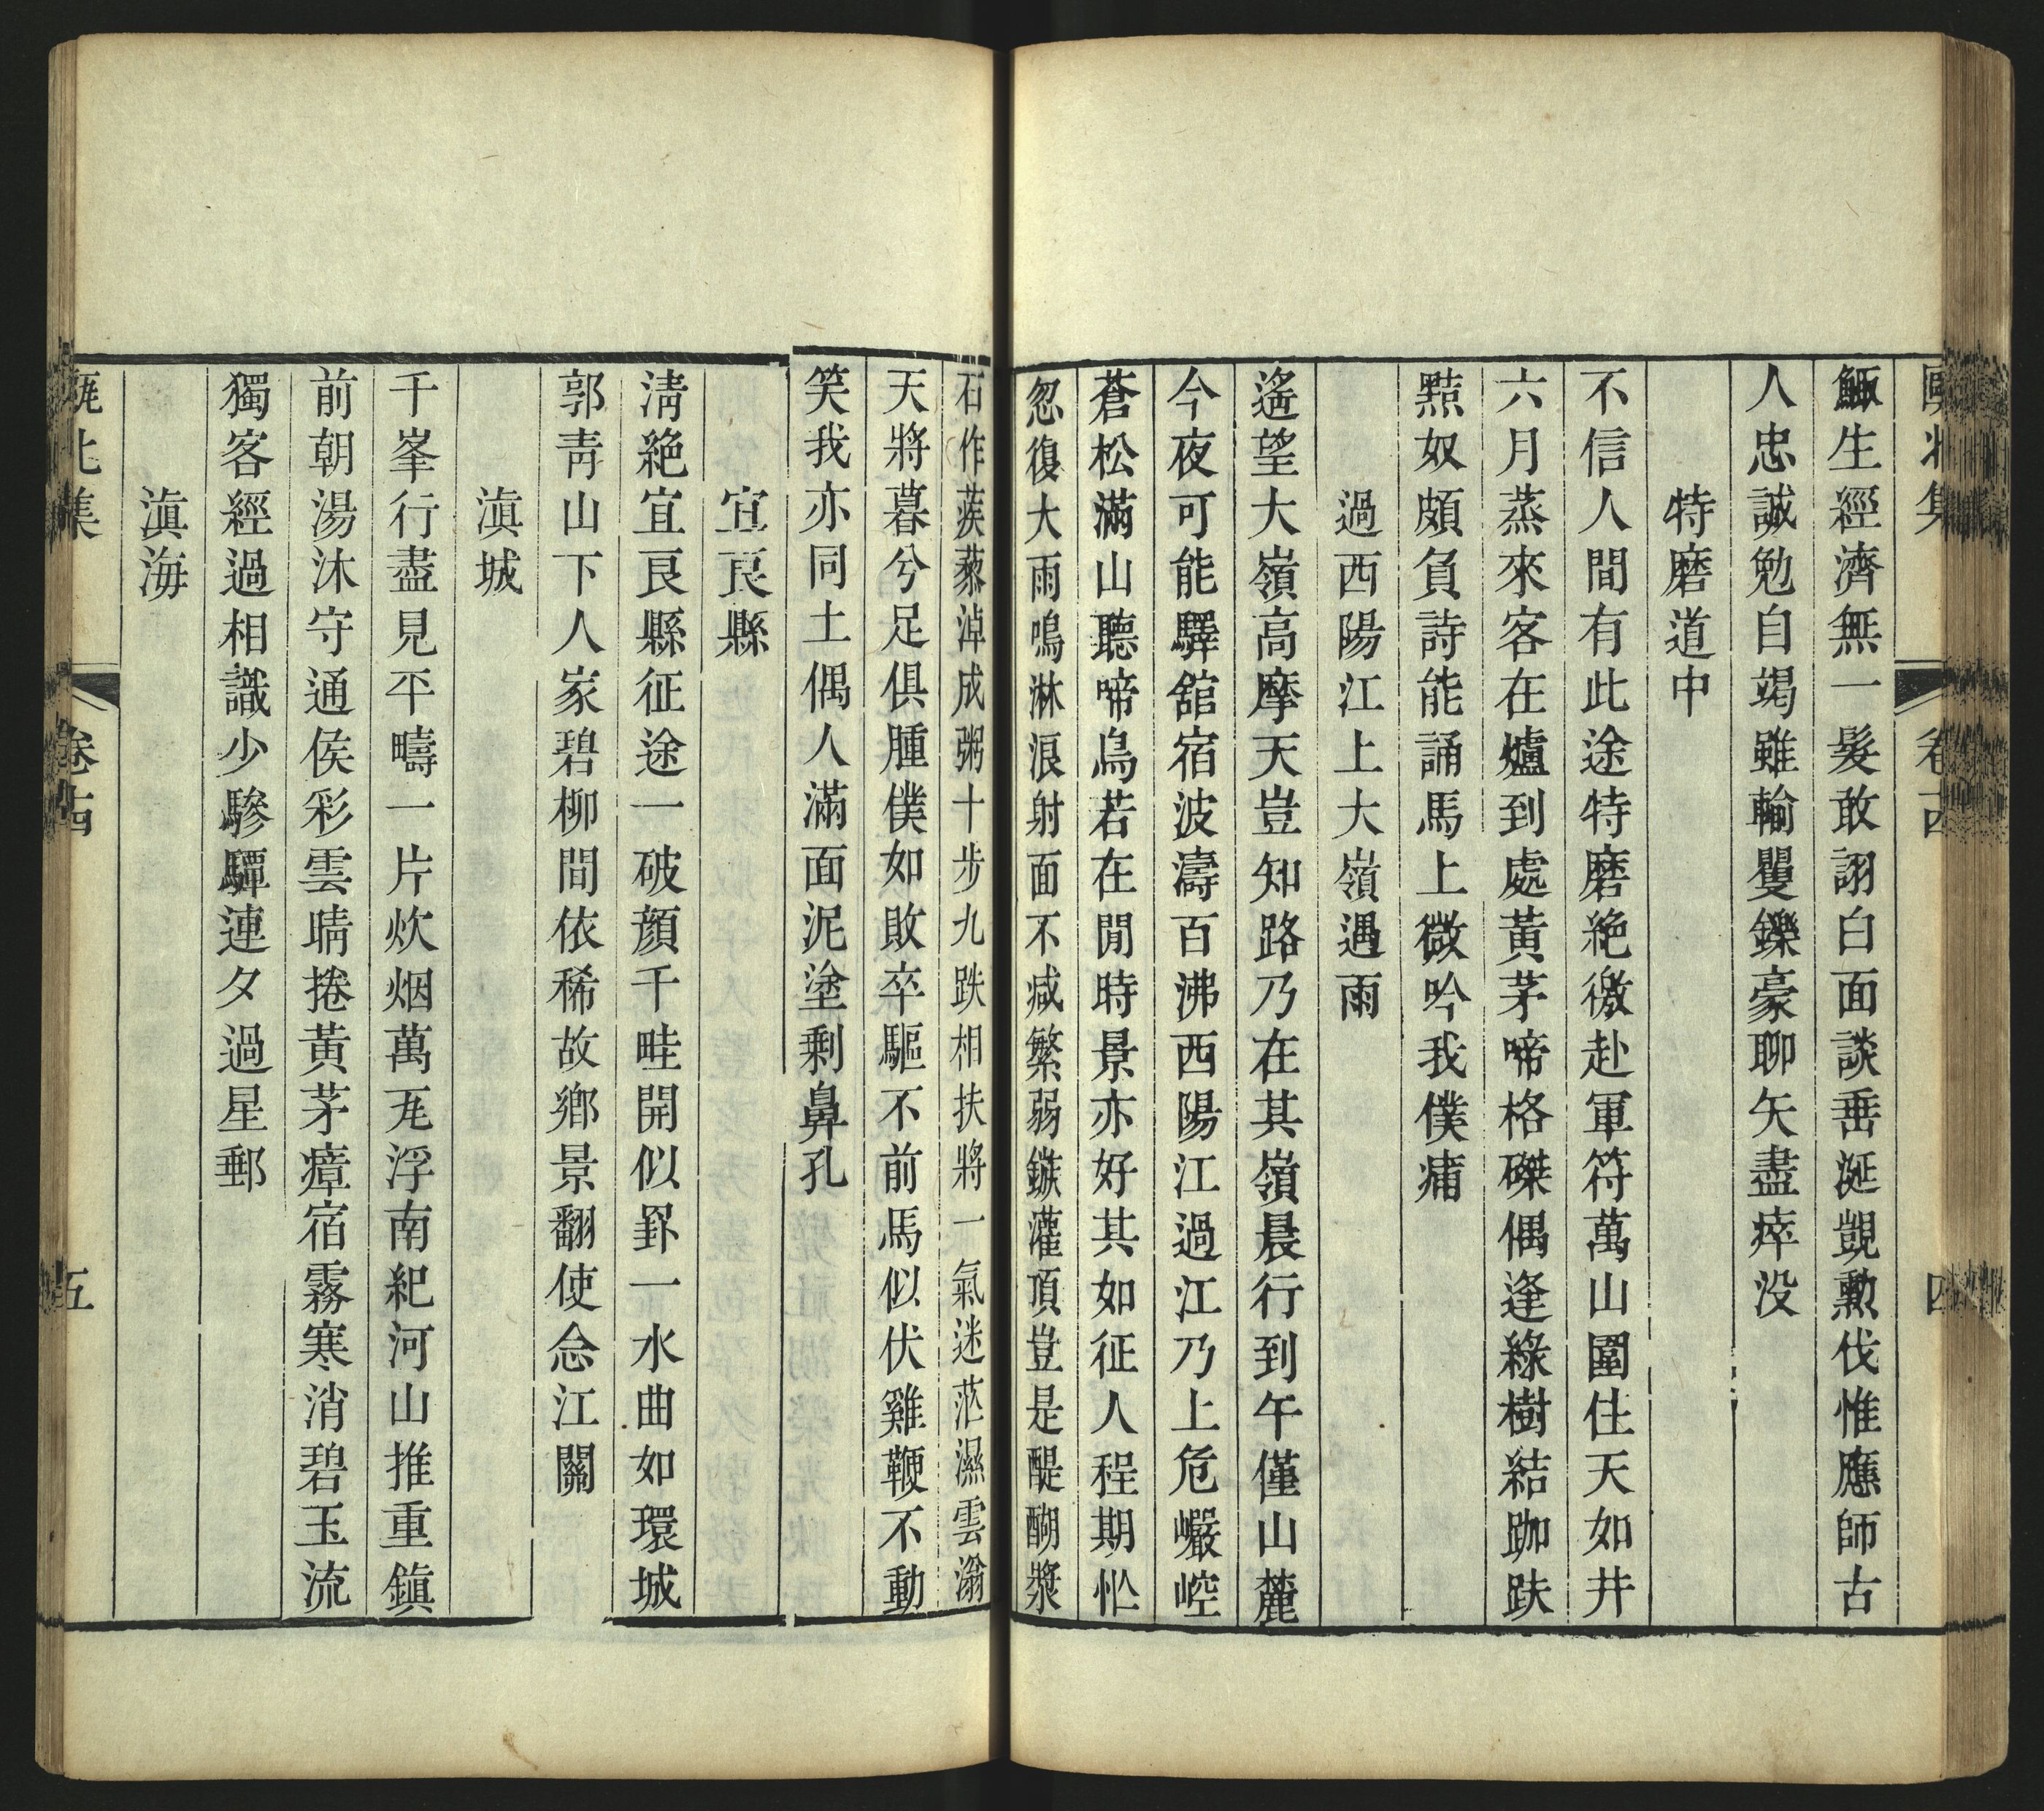 鯫生經濟無一髮敢詡白面談垂涎覬勲伐惟應師古
人忠誠勉自竭雖輸矍鑠豪聊矢盡瘁没
特磨道中
不信人間有此途特磨絶徼赴軍符萬山圍住天如井
六月蒸來客在爐到處黃茅啼格磔偶逢綠樹結跏趺
㸃奴頗負詩能誦馬上微吟我僕痡
過西陽江上大嶺遇雨
遙望大嶺高摩天豈知路乃在其嶺晨行到午僅山麓
今夜可能驛舘宿波濤百沸西陽江過江乃上危巖崆
蒼松滿山聽啼鳥若在閒時景亦好其如征人程期忙
忽復大雨鳴淋浪射面不减繁弱鏃灌頂豈是醍醐漿
石作蒺藜淖成粥十步九跌相扶將一氣迷茫濕雲滃
天將暮兮足俱腫僕如敗卒驅不前馬似伏雞鞭不動
笑我亦同土偶人滿面泥塗剩鼻孔
宜良縣
淸絶宜良縣征途一破顔千畦開似罫一水曲如環城
郭靑山下人家碧柳間依稀故鄉景翻使念江關
滇城
千峯行盡見平疇一片炊烟萬瓦浮南紀河山推重鎭
前朝湯沐守通侯彩雲晴捲黃茅瘴宿霧寒消碧玉流
獨客經過相識少驂驔連夕過星郵
滇海
甌北集
卷十四
五